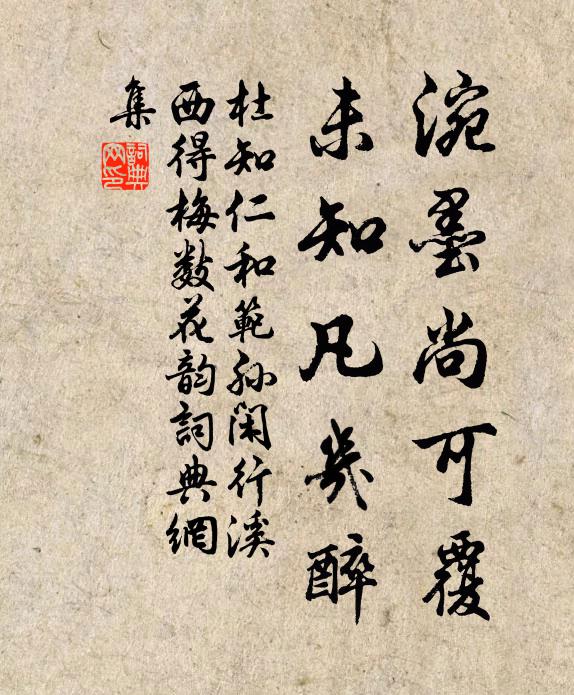 涴墨尚可覆
未知凡幾醉
杜知仁和範孙闲行溪
西得梅数花韵詞典網
集
詞典網印